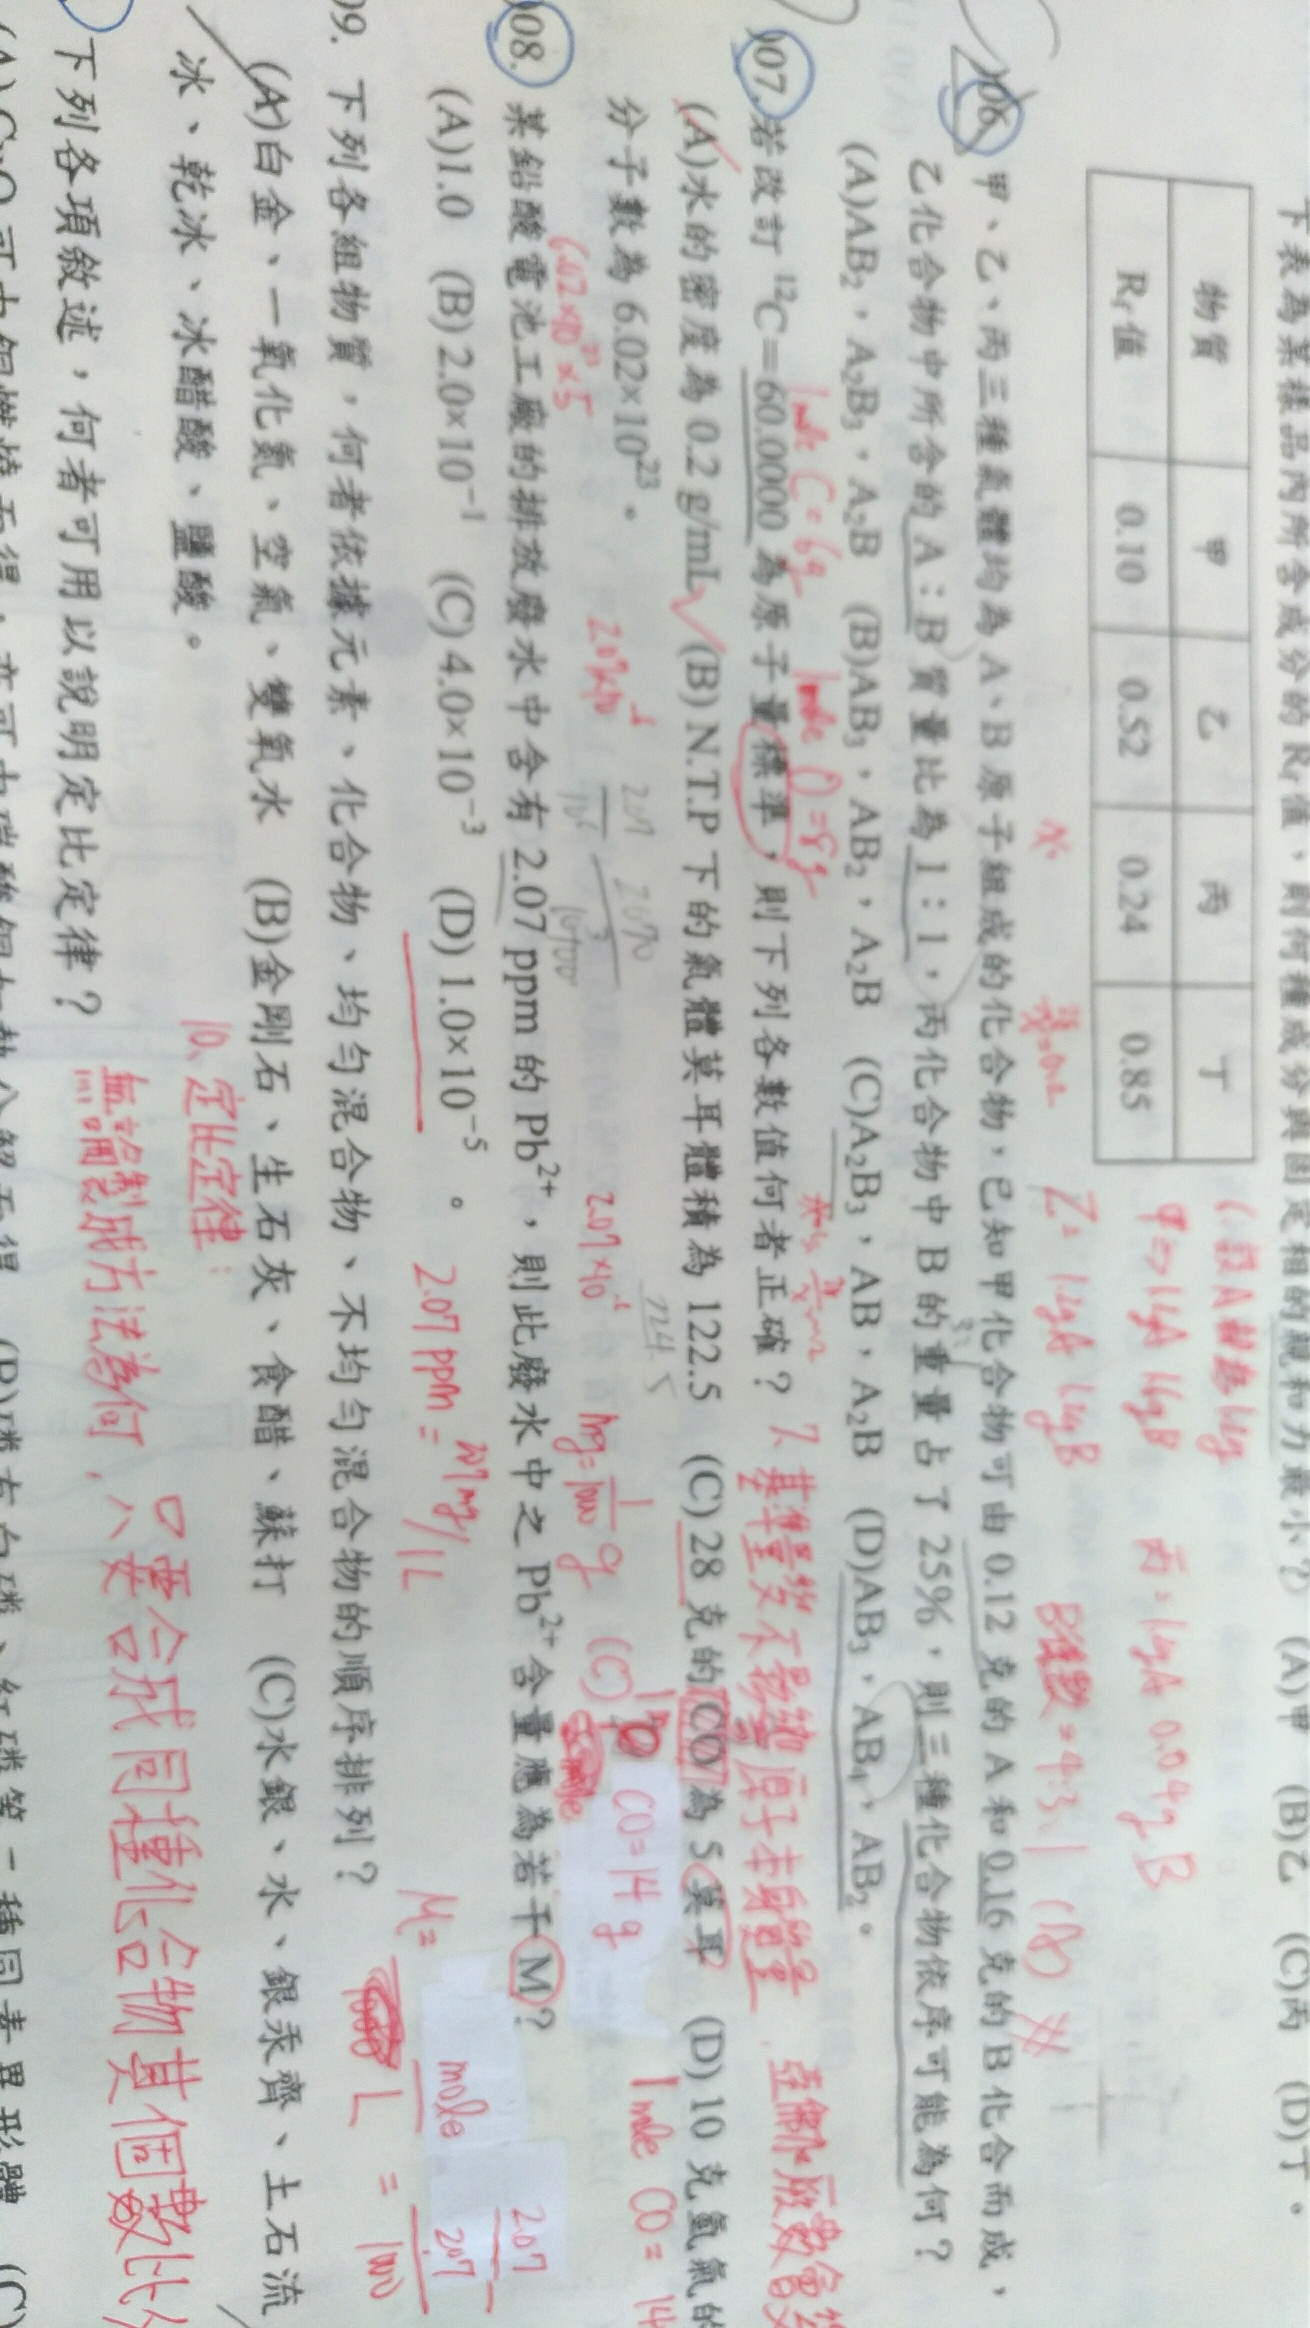 下表為某樣品內所含成分的 Rf 值，則何種成分與固定相的親和力最小？ (A)甲 (B)乙 (C)丙 (D)丁。
物質 甲 乙 丙 丁
Rf 值 0.10 0.52 0.24 0.85
1. 設A
甲⇒ 1.2gA 1.6gB 丙= 1.2gA 0.04gB
乙= 1.2gA 1.2gB B
06. 甲、乙、丙三種氣體均為 A、B 原子組成的化合物，已知甲化合物可由 0.12 克的 A 和 0.16 克的 B 化合而成，
乙化合物中所含的 A：B 質量比為 1：1，丙化合物中 B 的重量占了 25%，則三種化合物依序可能為何？
(A)AB2，A2B3，A2B (B)AB3，AB2，A2B (C)A2B3，AB，A2B (D)AB3，AB4，AB2。
1 mole C = 6g 1 mole O = 8g
07. 若改訂 ¹²C＝60.0000 為原子量標準，則下列各數值何者正確？
7. 基準量改不影響原子本身質量
(A)水的密度為 0.2 g/mL (B) N.T.P 下的氣體莫耳體積為 122.5 (C) 28 克的 CO 為 5 莫耳 (D) 10 克氫氣的
分子數為 6.02×10²³。
6.02×10²³×5
(C) CO = 14 g
1 mole CO = 14
2.07×10⁻⁶
mg = 1/1000 g
08. 某鉛酸電池工廠的排放廢水中含有 2.07 ppm 的 Pb²⁺，則此廢水中之 Pb²⁺ 含量應為若干 M？
(A)1.0 (B) 2.0×10⁻¹ (C) 4.0×10⁻³ (D) 1.0×10⁻⁵。
2.07 ppm = 2.07mg/1L
M = mole / L = 2.07 / 207 / 1000
09. 下列各組物質，何者依據元素、化合物、均勻混合物、不均勻混合物的順序排列？
(A)白金、一氧化氮、空氣、雙氧水 (B)金剛石、生石灰、食醋、蘇打 (C)水銀、水、銀汞齊、土石流
冰、乾冰、冰醋酸、鹽酸。
10、定比定律：
無論製成方法為何，只要合成同種化合物其個數比
下列各項敘述，何者可用以說明定比定律？